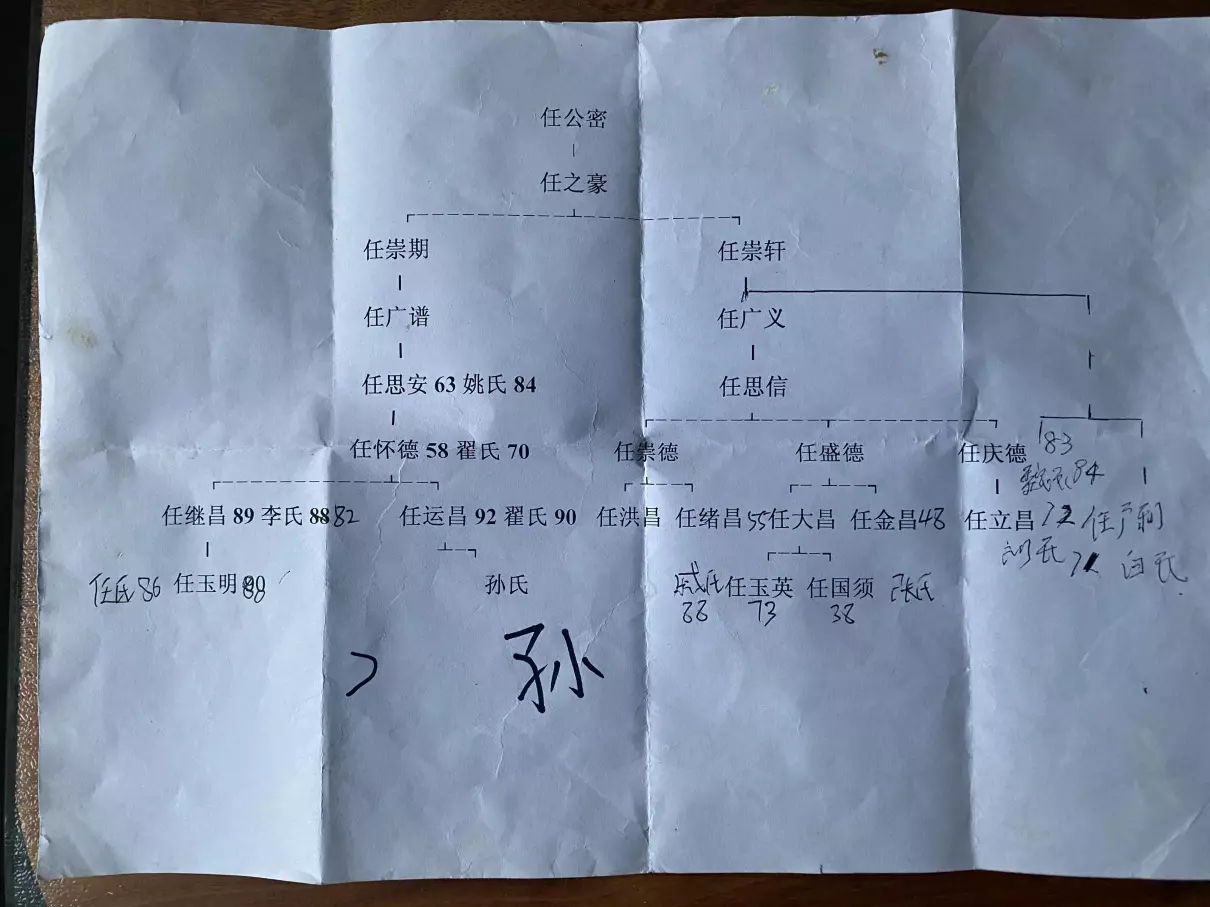 任公密
任之豪
任崇期 任崇轩
任广谱 任广义
任思安 63 姚氏 84 任思信
任怀德 58 翟氏 70 任崇德 任盛德 任庆德 83
84
任继昌 89 李氏 88 82 任运昌 92 翟氏 90 任洪昌 任绪昌 55 任大昌 任金昌 48 任立昌 72
任氏 86 任玉明 孙氏 戚氏 88 任玉英 73 任国须 38 张氏 白氏
孙